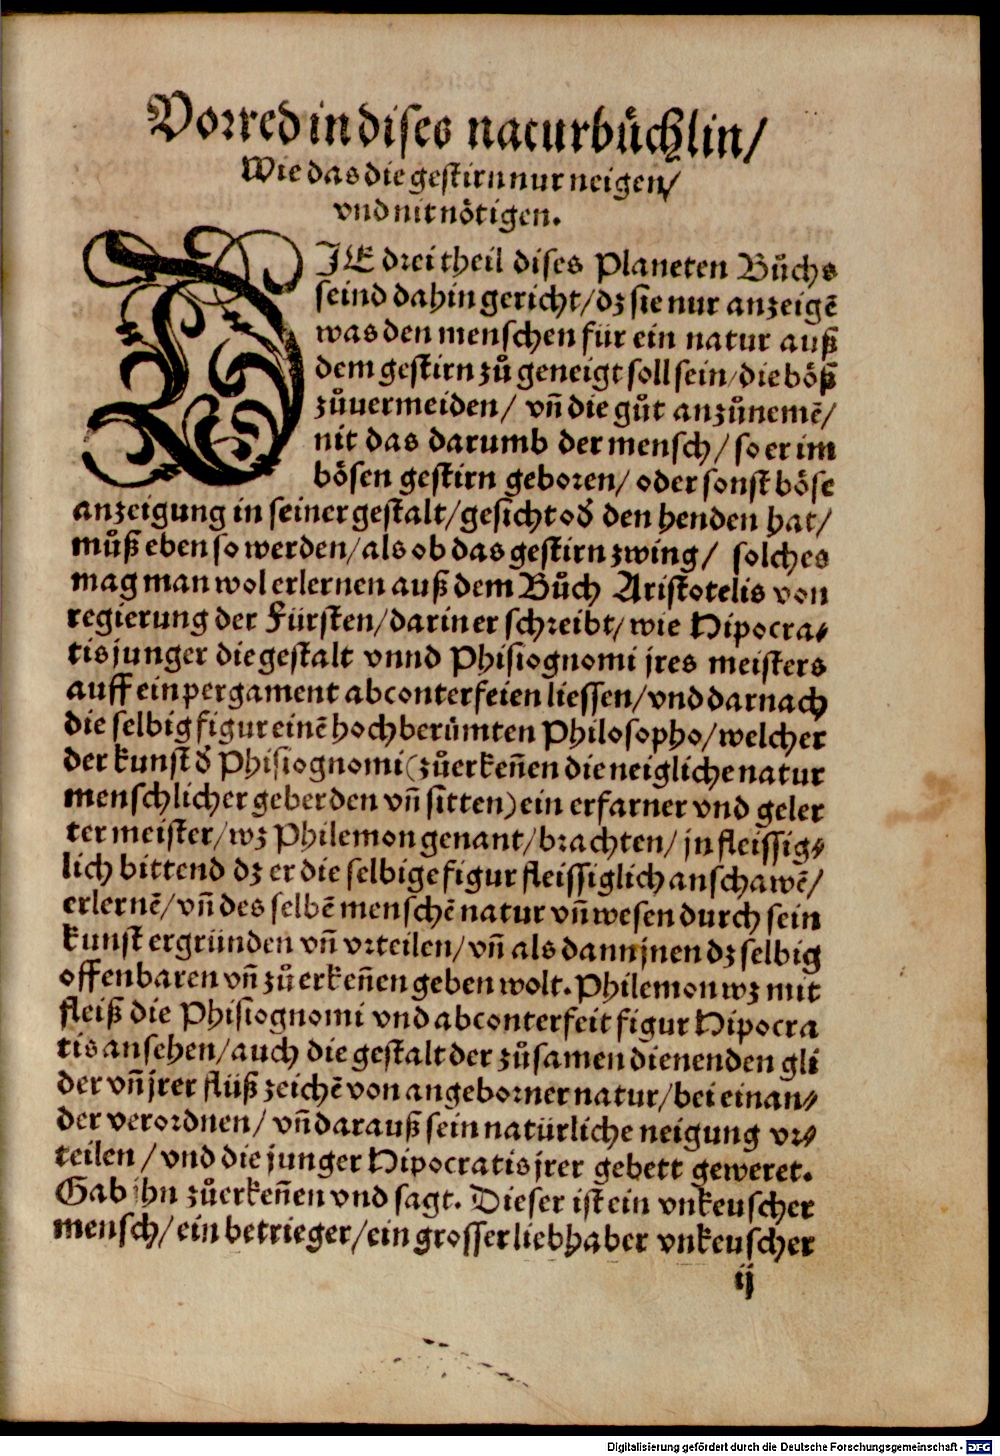 Vorred in dises naturbůchlin/
Wie das die gestirn nur neigen/
vnd nit nötigen.
DJE drei theil dises Planeten Bůchs
seind dahin gericht/dz sie nur anzeigē
was den menschen für ein natur auß
dem gestirn zů geneigt soll sein/die böß
zůuermeiden/ vñ die gůt anzůnemē/
nit das darumb der mensch/so er im
bösen gestirn geboren/oder sonst böse
anzeigung in seiner gestalt/gesicht oď den henden hat/
můß eben so werden/als ob das gestirn zwing/ solches
mag man wol erlernen auß dem Bůch Aristotelis von
regierung der Fürsten/darin er schreibt/wie Hipocra-
tis junger die gestalt vnnd Phisiognomi jres meisters
auff ein pergament abconterfeien liessen/vnd darnach
die selbig figur einē hochberümten Philosopho/welcher
der kunst ď Phisiognomi(zůerkeñen die neigliche natur
menschlicher geberden vñ sitten)ein erfarner vnd geler
ter meister/wz Philemon genant/brachten/jn fleissig-
lich bittend dz er die selbige figur fleissiglich anschawē/
erlernē/vñ des selbē menschē natur vñ wesen durch sein
kunst ergründen vñ vrteilen/vñ als dann jnen dz selbig
offenbaren vñ zů erkeñen geben wolt. Philemon wz mit
fleiß die Phisiognomi vnd abconterfeit figur Hipocra
tis ansehen/auch die gestalt der zůsamen dienenden gli
der vñ jrer flüß zeichē von angeborner natur/bei einan-
der verordnen/vñ darauß sein natürliche neigung vr-
teilen/vnd die junger Hipocratis jrer gebett geweret.
Gab jhn zůerkeñen vnd sagt. Dieser ist ein vnkeuscher
mensch/ein betrieger/ein grosser liebhaber vnkeuscher
ij
Digitalisierung gefördert durch die Deutsche Forschungsgemeinschaft - DFG